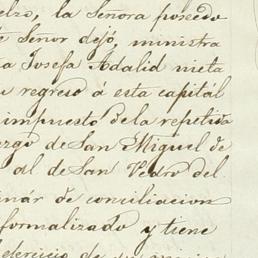 la Señora poseedo
Señor dejó, ministra
a Josefa Adalid nieta
regreso á esta capitál
impuesto de la repetida
de San Miguel de
al de San Pedro del
nár de conciliacion
formalizado y tiene